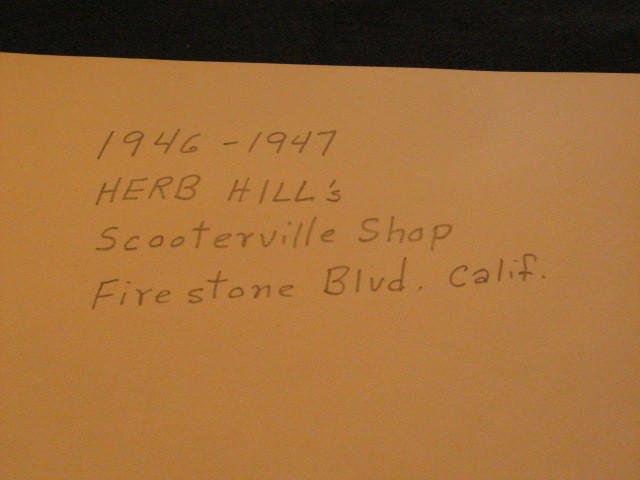 1946-1947
HERB HILL's
Scooterville Shop
Firestone Blvd. Calif.